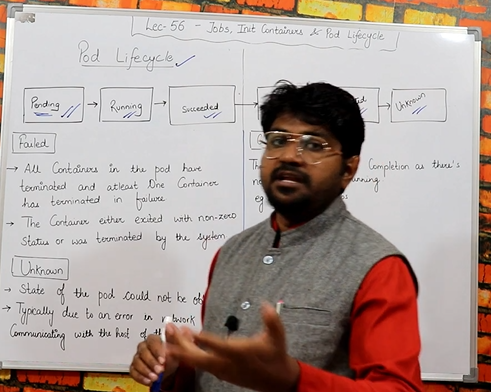 Lec-56 - Jobs, Init Containers & Pod Lifecycle
Pod Lifecycle
Pending
Running
Succeeded
Unknown
Failed
→ All Containers in the pod have
terminated and atleast One Container
has terminated in failure
→ The Container either exited with non-zero
Status or was terminated by the system
Unknown
→ State of the pod could not be
→ Typically due to an error in network
Communicating with the host of
Completion as there's